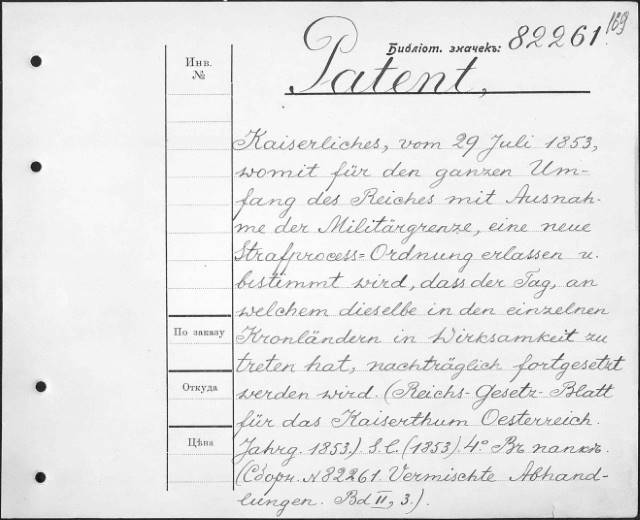 169
Библіот. значекъ: 82261.
Patent,
Инв.
№
Kaiserliches, vom 29 Juli 1853,
womit für den ganzen Um-
fang des Reiches mit Ausnah-
me der Militärgrenze, eine neue
Strafprocess=Ordnung erlassen u.
bestimmt wird, dass der Tag, an
welchem dieselbe in den einzelnen
По заказу
Kronländern in Wirksamkeit zu
treten hat, nachträglich fortgesetzt
Откуда
werden wird. (Reichs-Gesetz-Blatt
für das Kaiserthum Oesterreich.
Цѣна
Jahrg. 1853.) S.l. (1853). 4° Въ папкѣ.
(Сборн. № 82261. Vermischte Abhand-
lungen. Bd II, 3.).